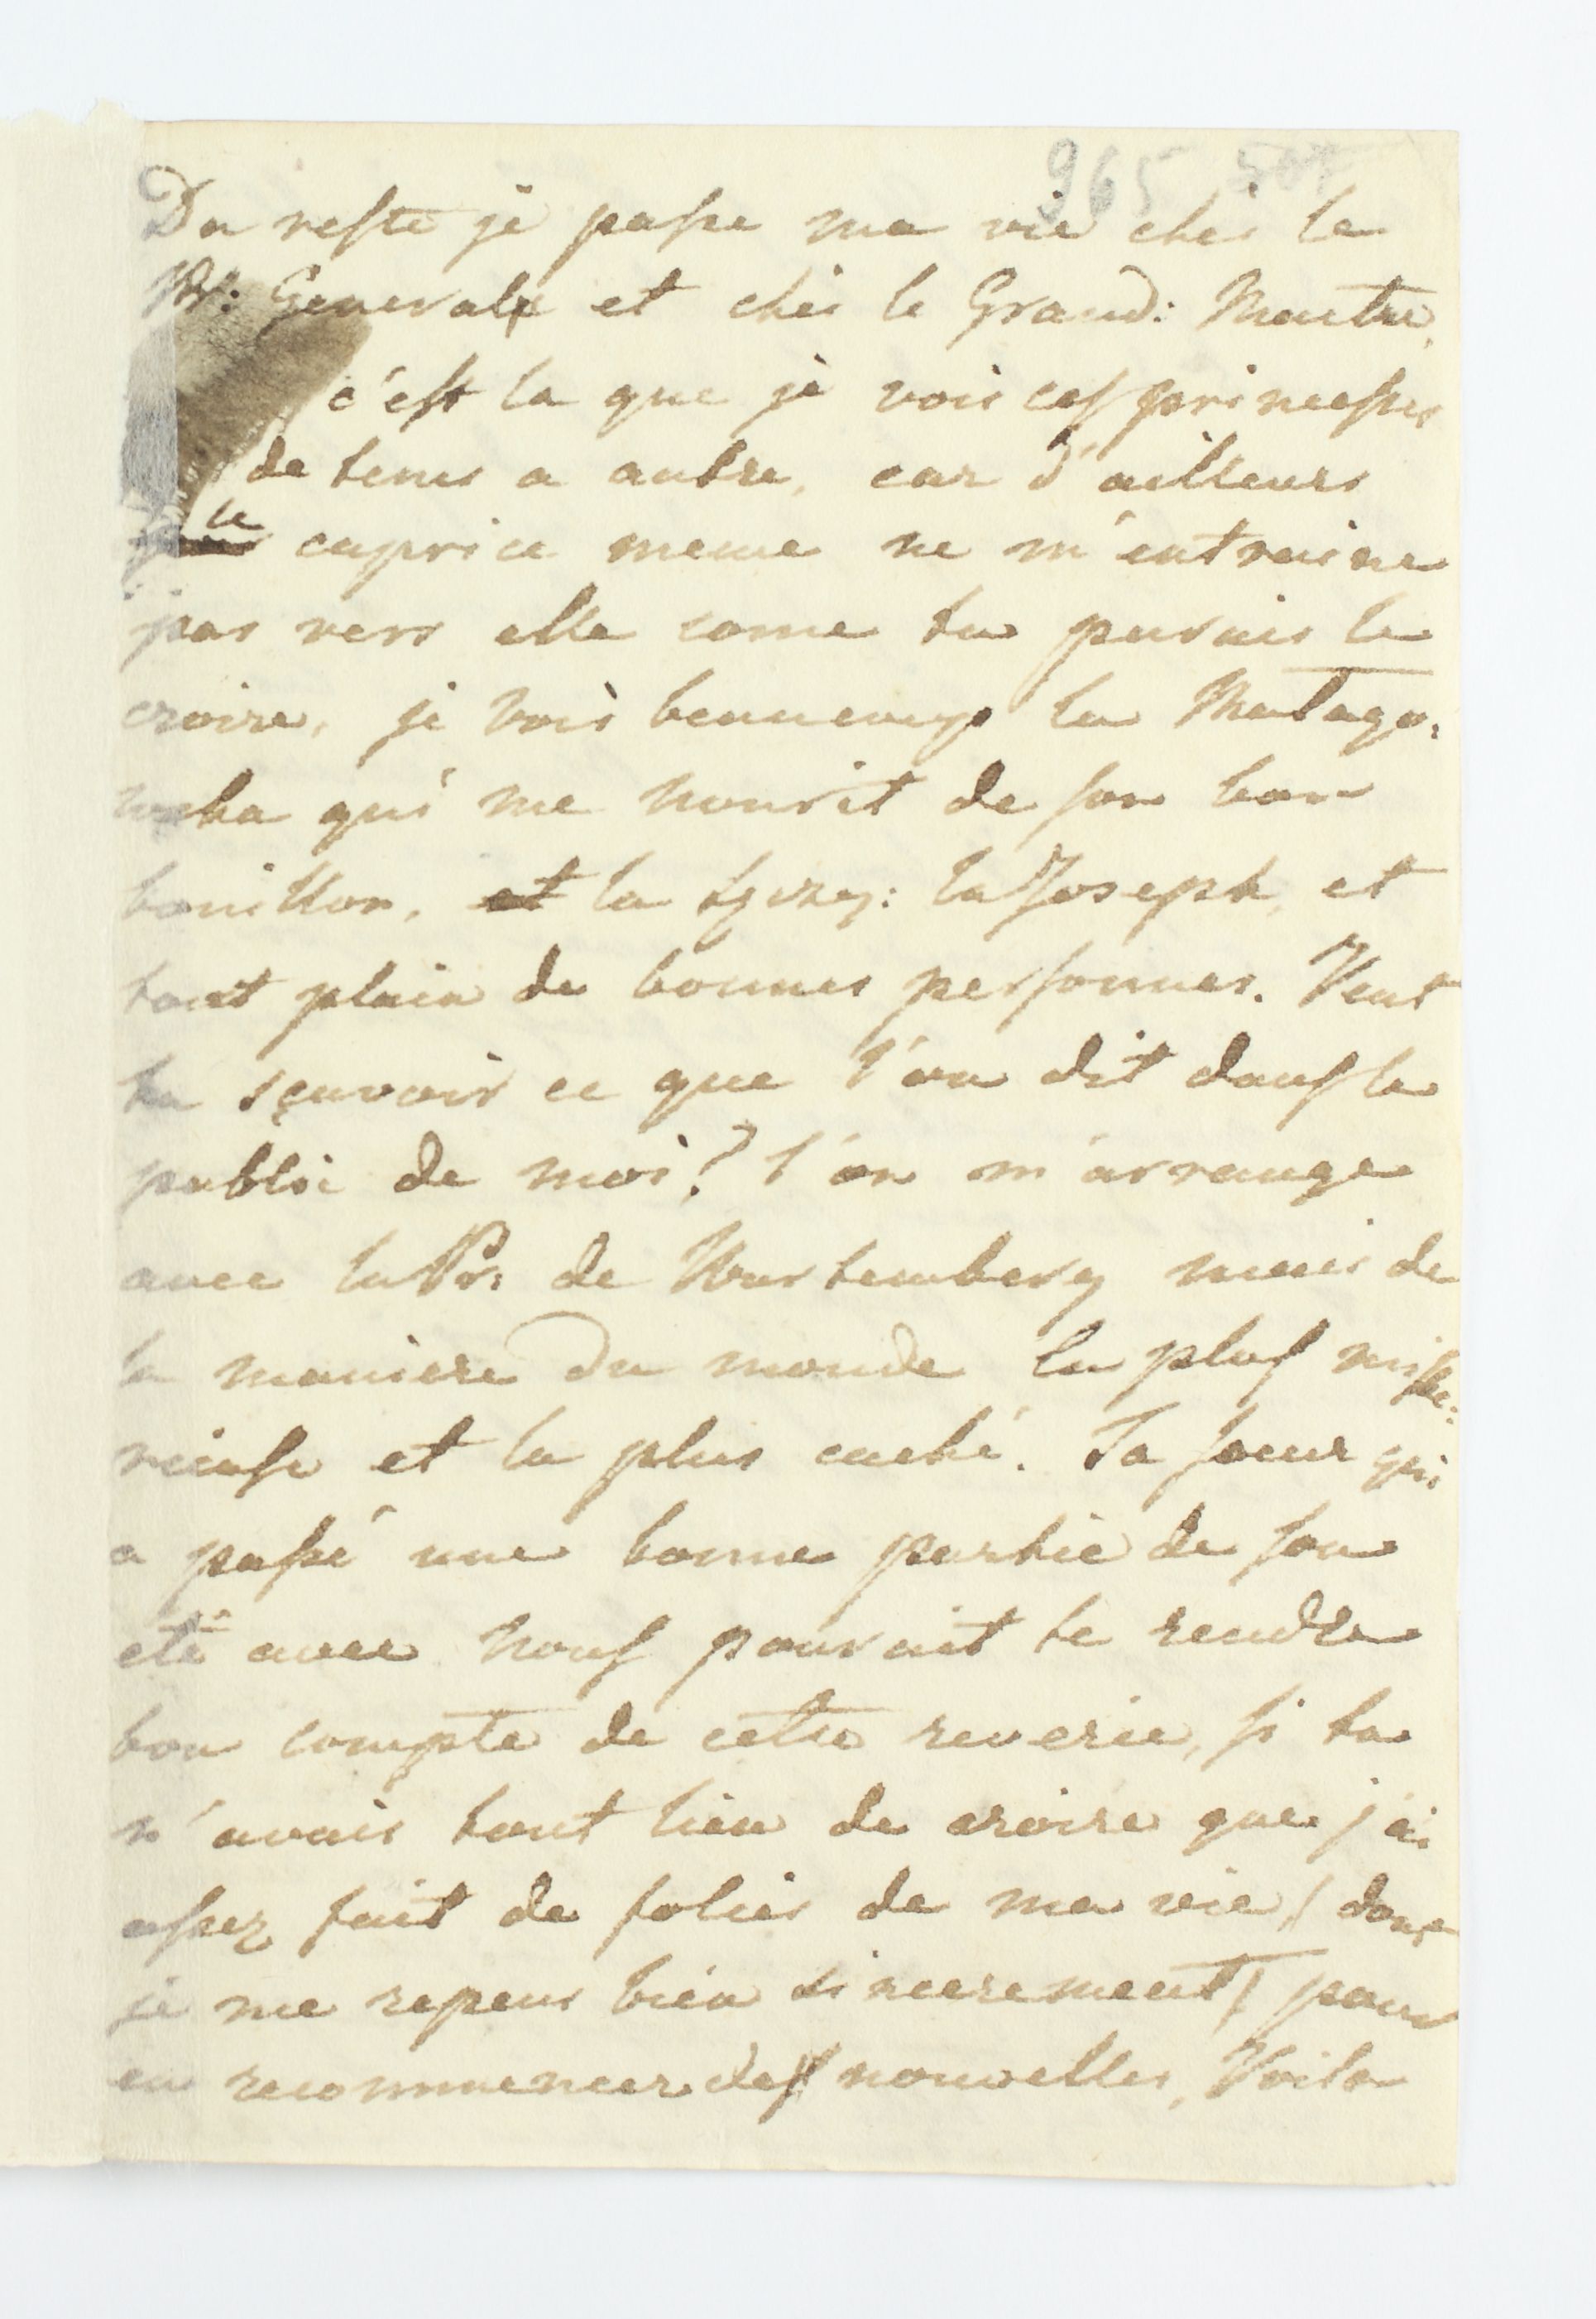 965 507
Du reste je passe ma vie chés le
Pr: Generale et chés le Grand: Maitre,
c'est la que je vois ces princesses
de tems a autre, car d'ailleurs
le caprice meme ne m'entraine
pas vers elle come tu purais le
croire, je vois beaucoup la Matago:
wska qui me nourit de son bon
bouillon, et la la Joseph, et
tout plain de bonnes personnes. Veut
tu sçuvoir ce que l'on dit dans le
public de moi? l'on m'arrange
avec la Pr: de Wurtemberg mais de
la maniere du monde la plus miste:
rieuse et la plus caché. Ta soeur qui
a passé une bonne partie de son
eté avec nous pourait te rendre
bon compte de cette reverie, si tu
n'avais tout lieu de croire que j'ai
assez fait de folies de ma vie / dont
je me repens bien sincerement / pour
en recommencer des nouvelles, Voila